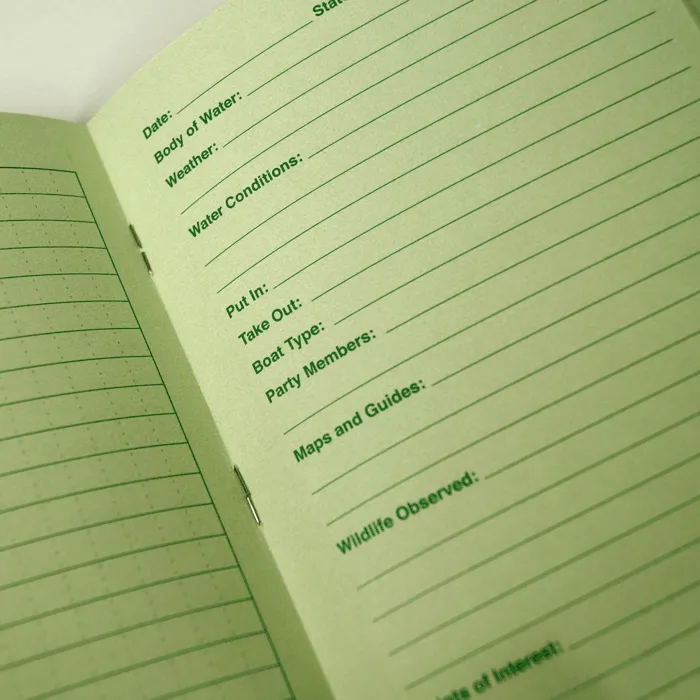 Date:
Body of Water:
Weather:
Water Conditions:
Put In:
Take Out:
Boat Type:
Party Members:
Maps and Guides:
Wildlife Observed:
of Interest: